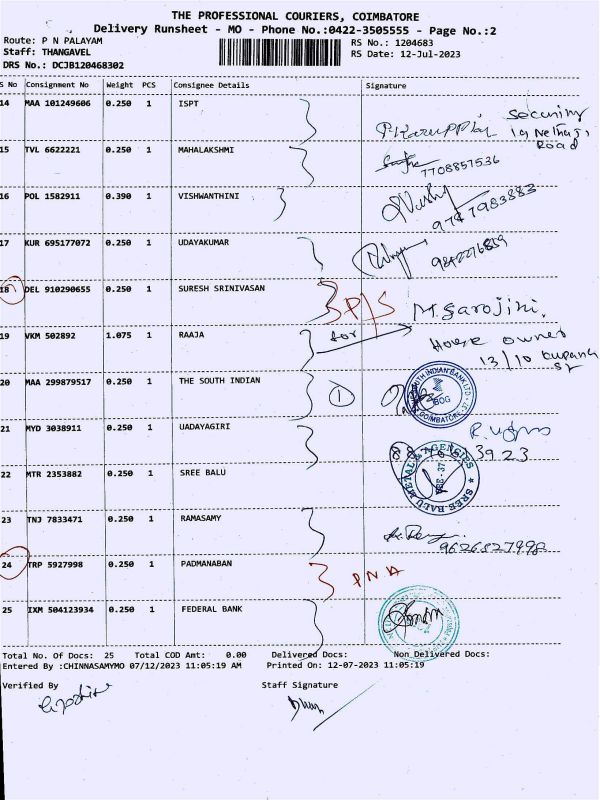 THE PROFESSIONAL COURIERS, COIMBATORE
Delivery Runsheet - MO - Phone No.:0422-3505555 - Page No.:2
Route: P N PALAYAM RS No.: 1204683
Staff: THANGAVEL RS Date: 12-Jul-2023
DRS No.: DCJB120468302
S No Consignment No Weight PCS Consignee Details Signature
14 MAA 101249606 0.250 1 ISPT
Road
15 TVL 6622221 0.250 1 MAHALAKSHMI
7708857536
16 POL 1582911 0.390 1 VISHWANTHINI
9747983883
17 KUR 695177072 0.250 1 UDAYAKUMAR
18 DEL 910290655 0.250 1 SURESH SRINIVASAN
M. Sarojini.
19 VKM 502892 1.075 1 RAAJA for
House owner
13/10
20 MAA 299879517 0.250 1 THE SOUTH INDIAN 1
SOUTH INDIAN BANK LTD.
BOG
COIMBATORE - 37
21 MYD 3038911 0.250 1 UADAYAGIRI
22 MTR 2353882 0.250 1 SREE BALU
SREE BALU METAL AGENCIES
CBE - 37
23 TNJ 7833471 0.250 1 RAMASAMY
9626327992
24 TRP 5927998 0.250 1 PADMANABAN PNA
25 IXM 504123934 0.250 1 FEDERAL BANK
Total No. Of Docs: 25 Total COD Amt: 0.00 Delivered Docs: Non Delivered Docs:
Entered By :CHINNASAMYMO 07/12/2023 11:05:19 AM Printed On: 12-07-2023 11:05:19
Verified By Staff Signature